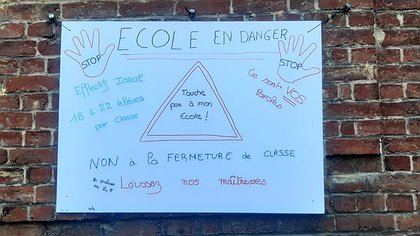 ECOLE EN DANGER
STOP
STOP
Effectif Ideal:
18 à 22 élèves
par classe
Touche
pas à mon
Ecole !
Ce sont VOS
Paroles
NON à la FERMETURE de CLASSE
Laissez nos maîtresses